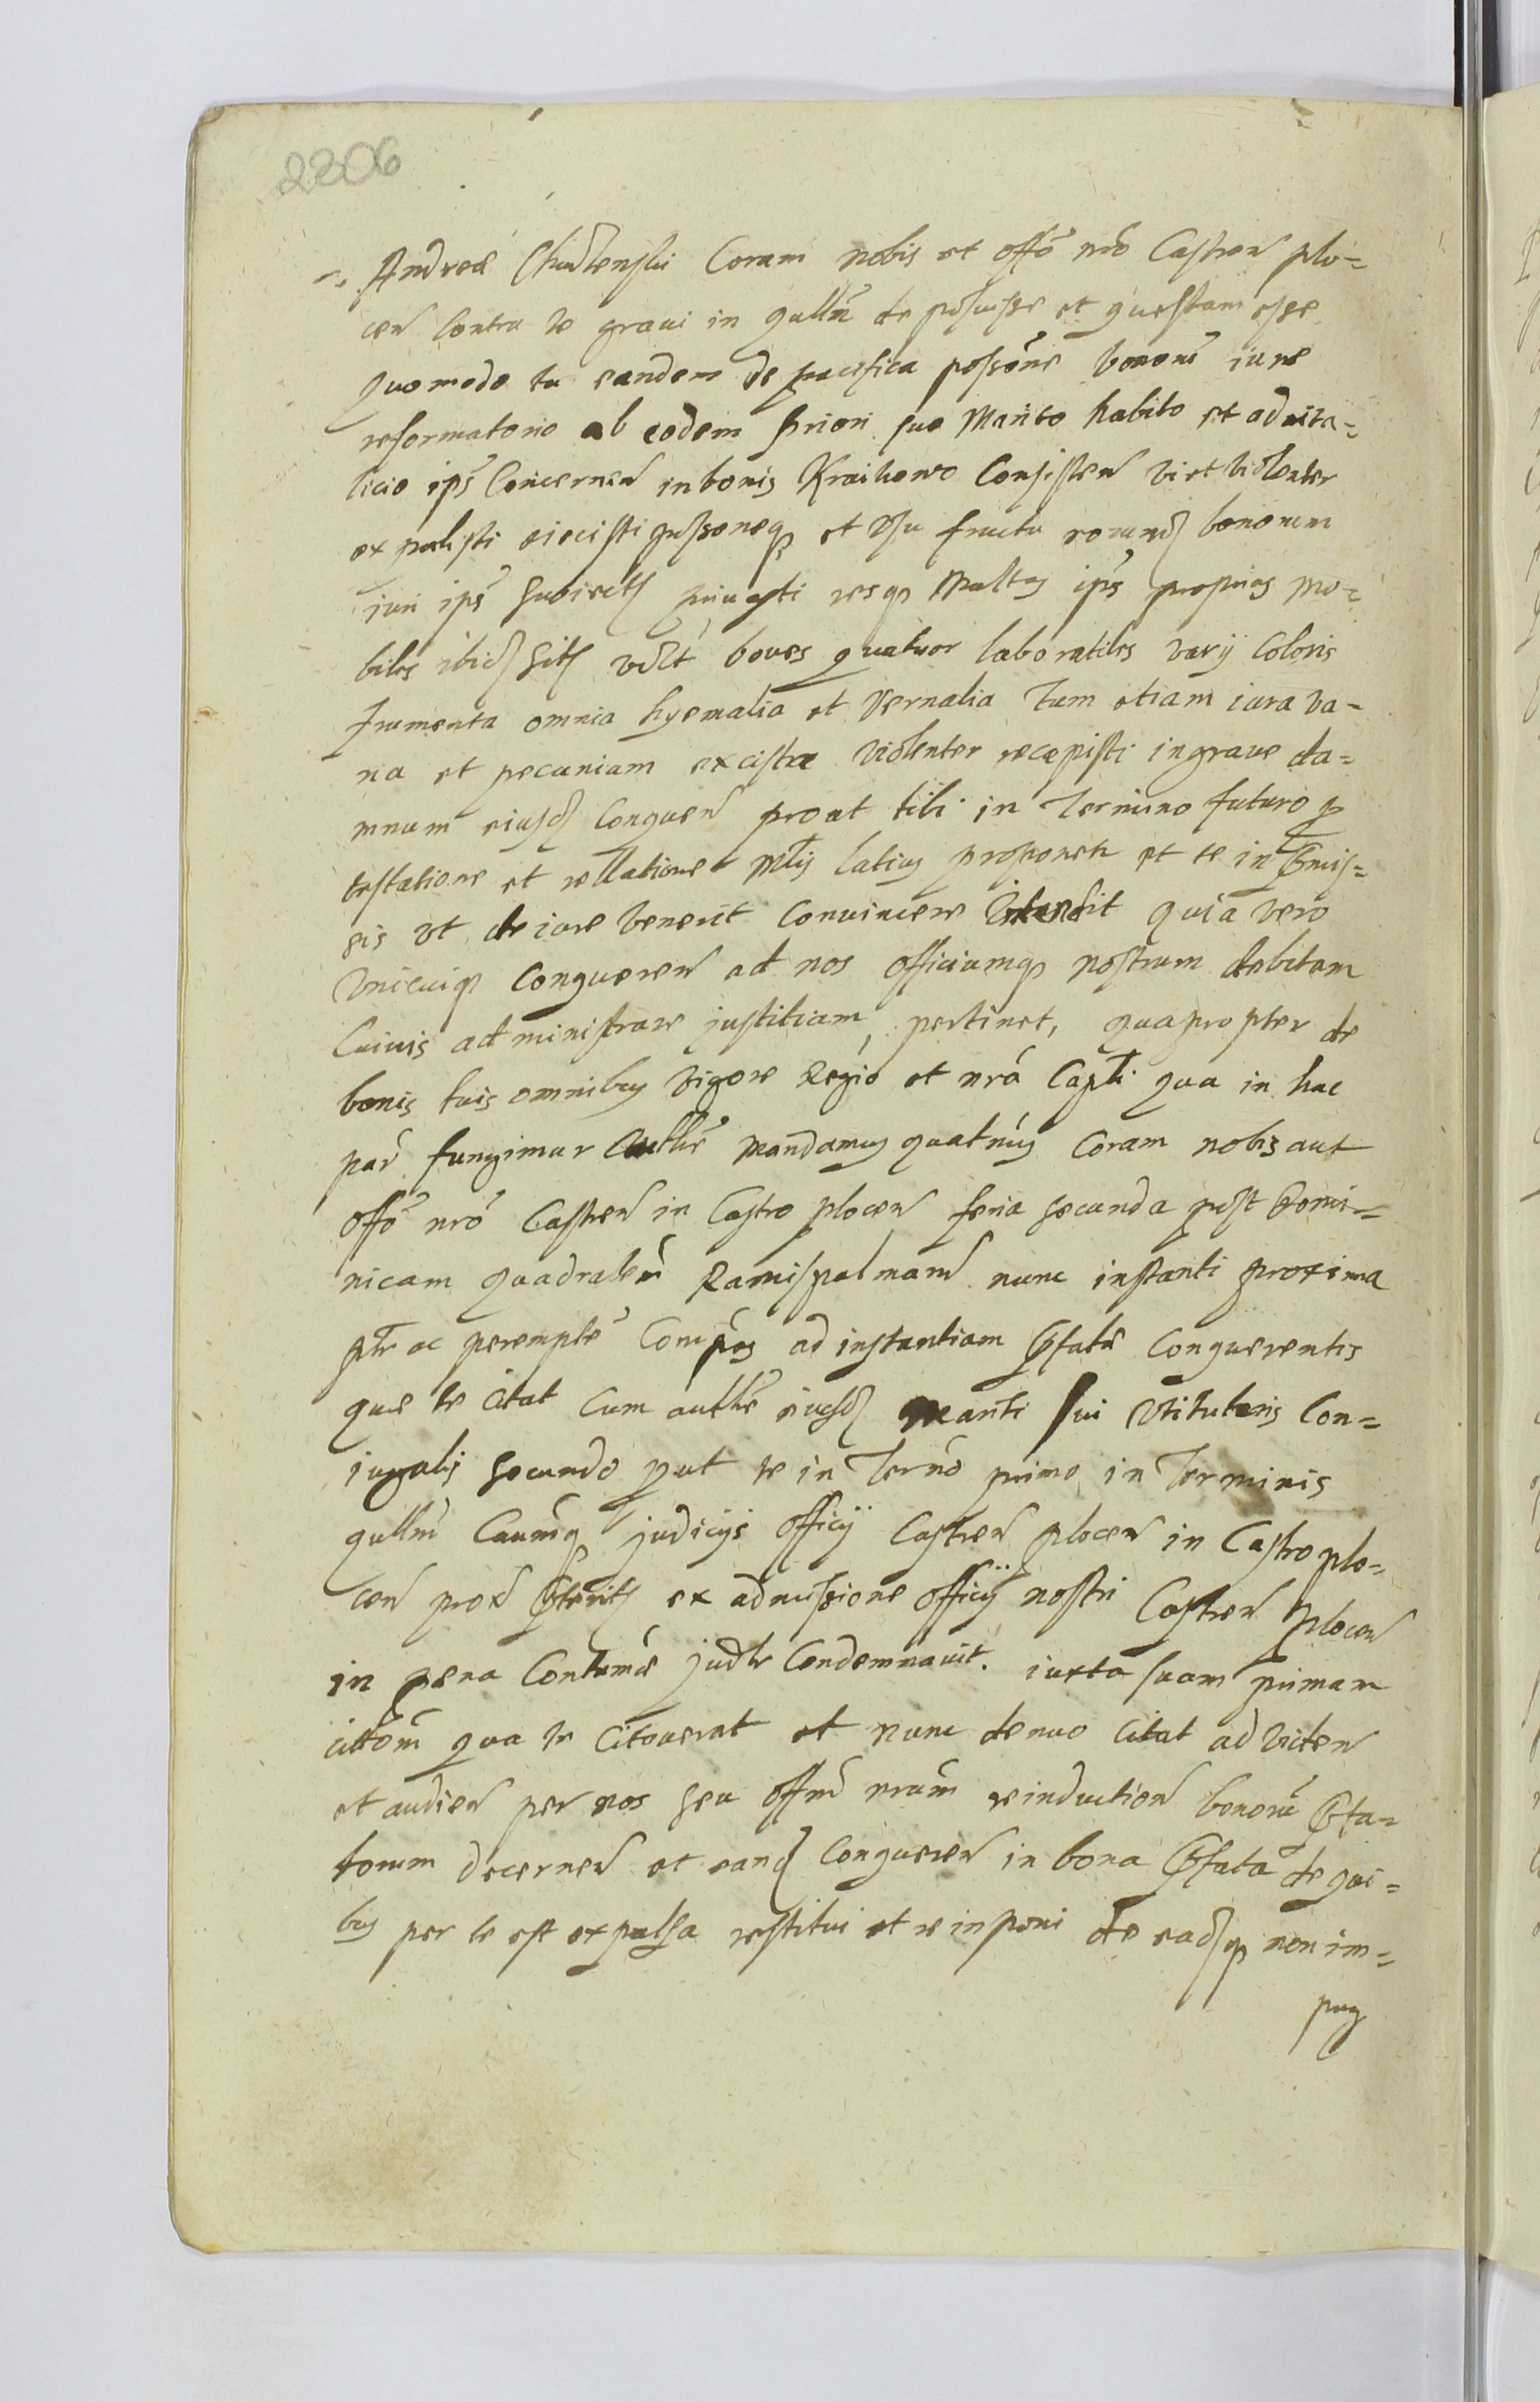 2206
Andreæ Chudzenski Coram nobis et offo nro Castren plo=
cen Contra te graui in quelln deposuisse et questam esse
quomodo tu eandem de pacifica possone bonom iure
reformatorio ab eodem priori suo Marito habito et aduita=
licio ips Concernen in bonis Kraikowo Consisten vi et violenter
expulisti eiecisti possoneq et usu fructu eorund bonorum
iuri ips subiects priuasti resq Multas ips proprias mo=
biles ibid sits vdlt boues quatuor laboratiles varij Coloris
frumenta omnia hyemalia et Vernalia Tum etiam iura va=
ria et pecuniam ex cistæ violenter recæpisti in graue da=
mnum eiusd Conqueren prout tibi in Termino futuro p
testatione et rellatione Mlis latius proponetr et te in præmis=
sis vt de iure venerit Conuincere Intendit quia vero
vnicuiq Conqueren ad nos officiumq nostrum debitam
Cuiuis administrare justitiam, pertinet, quapropter de
bonis tuis omnibus vigore Regio et nra Capli qua in hac
par fungimur Autthe Mandamus quatnus Coram nobis aut
offo nro Castren in Castro plocen feria secunda post Domi=
nicam quadralem Ramispalmarum nunc instanti proxima
ptr ac perempte Compas ad instantiam præfatæ Conquerentis
quæ te Citat Cum autthe eiusd Mariti sui vti tutoris Con=
iugalis secundo put te in Terno primo in Terminis
qullm Caumq judicijs officij Castren plocen in Castro plo=
cen prox præterits ex admissione officij nostri Castren plocen
in pena Contumæ judlr Condemnauit. iuxta suam primam
cittom qua te Citauerat et nunc denuo Citat ad viden
et audien per nos seu offm nrum reinduction bonom præfa=
torum decernen et eand Conqueren in bona præfata de qui=
bus per te est expulsa restitui et reinponi de eadsq non im=
pug